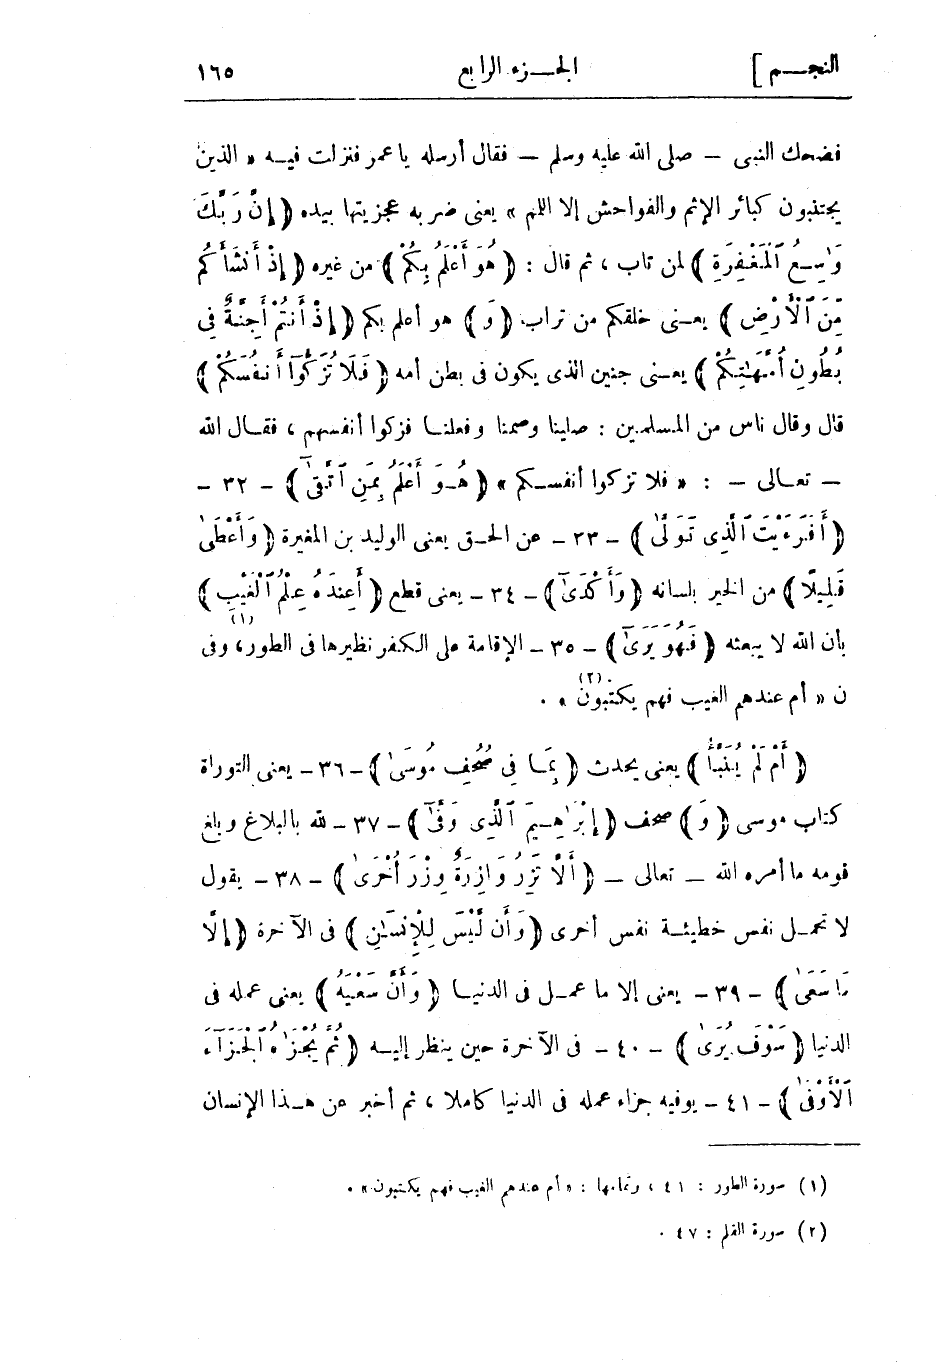 النجم ]
الجزء الرابع
١٦٥
فضحك النبى – صلى الله عليه وسلم – فقال أرسله يا عمر فنزلت فيه « الذين
يجتنبون كبائر الإثم والفواحش إلا اللمم » يعنى ضربه عجزيتها بيده ﴿ إِنَّ رَبَّكَ
وَٰسِعُ ٱلْمَغْفِرَةِ ﴾ لمن تاب ، ثم قال : ﴿ هُوَ أَعْلَمُ بِكُمْ ﴾ من غيره ﴿ إِذْ أَنشَأَكُم
مِّنَ ٱلْأَرْضِ ﴾ يعنى خلقكم من تراب ﴿ وَ ﴾ هو أعلم بكم ﴿ إِذْ أَنتُمْ أَجِنَّةٌ فِى
بُطُونِ أُمَّهَٰتِكُمْ ﴾ يعنى جنين الذى يكون فى بطن أمه ﴿ فَلَا تُزَكُّوٓا أَنفُسَكُمْ ﴾
قال وقال ناس من المسلمين : صلينا وصمنا وفعلنا فزكوا أنفسهم ، فقال الله
– تعالى – : « فلا تزكوا أنفسكم » ﴿ هُوَ أَعْلَمُ بِمَنِ ٱتَّقَىٰٓ ﴾ – ٣٢ –
﴿ أَفَرَءَيْتَ ٱلَّذِى تَوَلَّىٰ ﴾ – ٣٣ – عن الحق يعنى الوليد بن المغيرة ﴿ وَأَعْطَىٰ
قَلِيلًا ﴾ من الخير بلسانه ﴿ وَأَكْدَىٰٓ ﴾ – ٣٤ – يعنى قطع ﴿ أَعِندَهُ عِلْمُ ٱلْغَيْبِ ﴾
بأن الله لا يبعثه ﴿ فَهُوَ يَرَىٰٓ ﴾ – ٣٥ – الإقامة على الكفر نظيرها فى الطور(١)، وفى
ن « أم عندهم الغيب فهم يكتبون(٢) » .
﴿ أَمْ لَمْ يُنَبَّأْ ﴾ يعنى يحدث ﴿ بِمَا فِى صُحُفِ مُوسَىٰ ﴾ – ٣٦ – يعنى التوراة
كتاب موسى ﴿ وَ ﴾ صحف ﴿ إِبْرَٰهِيمَ ٱلَّذِى وَفَّىٰٓ ﴾ – ٣٧ – لله بالبلاغ وبلغ
قومه ما أمره الله – تعالى – ﴿ أَلَّا تَزِرُ وَازِرَةٌ وِزْرَ أُخْرَىٰ ﴾ – ٣٨ – يقول
لا تحمل نفس خطيئة نفس أخرى ﴿ وَأَن لَّيْسَ لِلْإِنسَٰنِ ﴾ فى الآخرة ﴿ إِلَّا
مَا سَعَىٰ ﴾ – ٣٩ – يعنى إلا ما عمل فى الدنيا ﴿ وَأَنَّ سَعْيَهُ ﴾ يعنى عمله فى
الدنيا ﴿ سَوْفَ يُرَىٰ ﴾ – ٤٠ – فى الآخرة حين ينظر إليه ﴿ ثُمَّ يُجْزَىٰهُ ٱلْجَزَآءَ
ٱلْأَوْفَىٰ ﴾ – ٤١ – يوفيه جزاء عمله فى الدنيا كاملا ، ثم أخبر عن هذا الإنسان
(١) سورة الطور : ٤١ ، وتمامها : « أم عندهم الغيب فهم يكتبون » .
(٢) سورة القلم : ٤٧ .